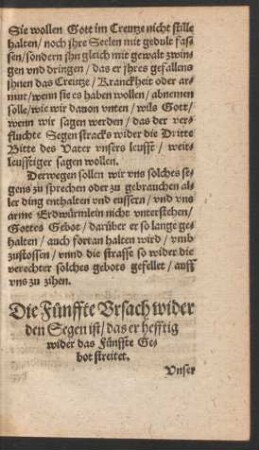 Sie wollen Gott im Creutze nicht stille
halten/ noch jhre Seelen mit gedult fas
sen/ sondern jhn gleich mit gewalt zwin-
gen vnd dringen/ das er jhres gefallens
jhnen das Creutze/ Kranckheit oder ar-
mut/ wenn sie es haben wollen/ abnemen
solle/ wie wir dauon vnten/ wils Gott/
wenn wir sagen werden/ das der ver-
fluchte Segen stracks wider die Dritte
Bitte des Vater vnsers leufft/ weit-
leufftiger sagen wollen.
Derwegen sollen wir vns solches se-
gens zu sprechen oder zu gebrauchen al-
ler ding enthalten vnd eussern/ vnd vns
arme Erdwürmlein nicht vnterstehen/
Gottes Gebot/ darüber er so lange ge-
halten/ auch fortan halten wird/ vmb-
zustossen/ vnnd die straffe so wider die
verechter solches gebots gefellet/ auff
vns zu zihen.
Die Fünffte Vrsach wider
den Segen ist/ das er hefftig
wider das Fünffte Ge-
bot streitet.
Vnser